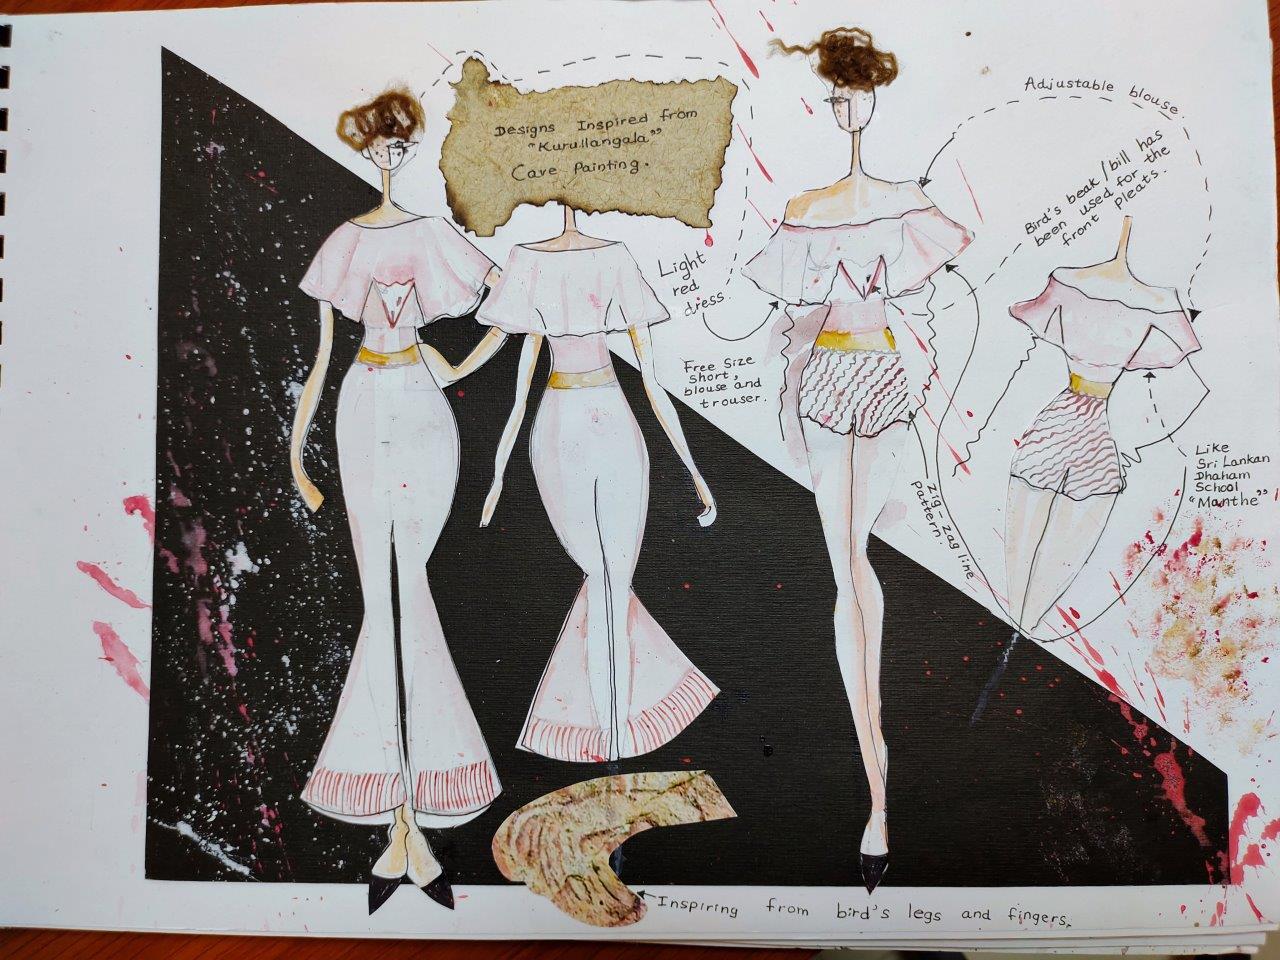 Designs Inspired from
"Kurullangala"
Cave Painting.
Adjustable blouse.
Bird's beak/bill has
been used for the
front pleats.
Light
red
dress.
Free Size
Short,
blouse and
trouser.
Zig-Zag line
pattern.
Like
Sri Lankan
Dhaham
School
"Manthe"
Inspiring from bird's legs and fingers.